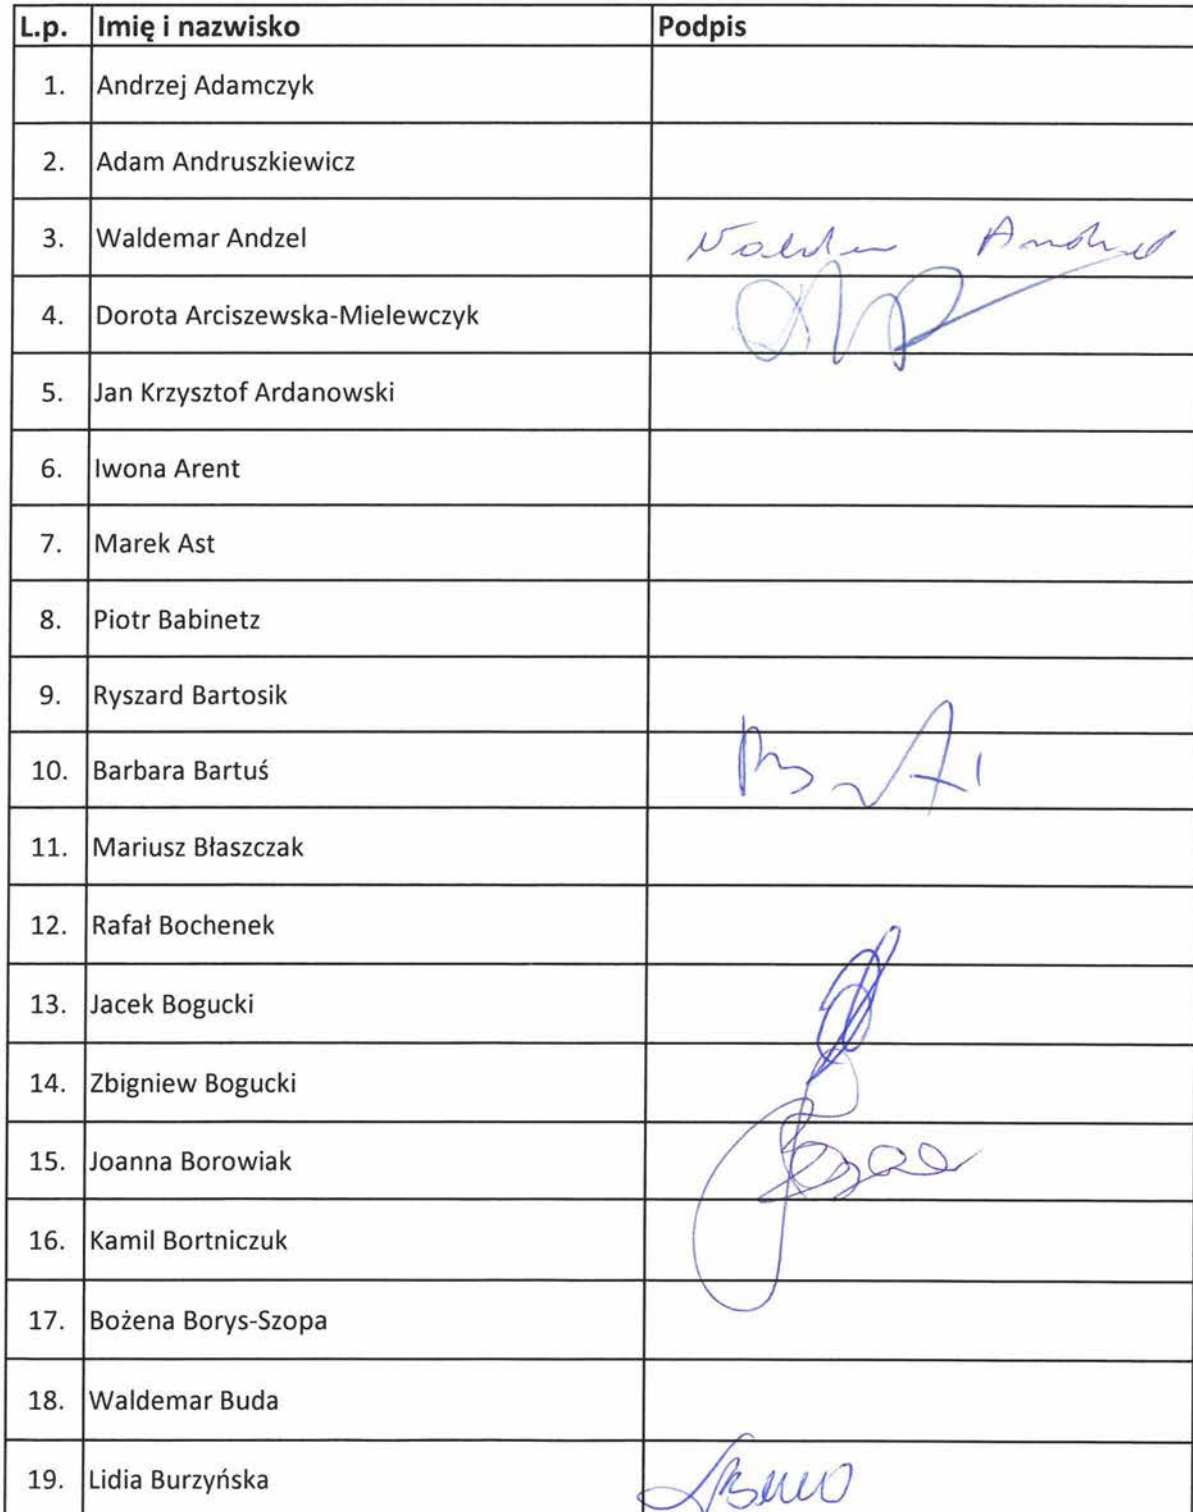 L.p. Imię i nazwisko Podpis
1. Andrzej Adamczyk
2. Adam Andruszkiewicz
3. Waldemar Andzel
4. Dorota Arciszewska-Mielewczyk
5. Jan Krzysztof Ardanowski
6. Iwona Arent
7. Marek Ast
8. Piotr Babinetz
9. Ryszard Bartosik
10. Barbara Bartuś
11. Mariusz Błaszczak
12. Rafał Bochenek
13. Jacek Bogucki
14. Zbigniew Bogucki
15. Joanna Borowiak
16. Kamil Bortniczuk
17. Bożena Borys-Szopa
18. Waldemar Buda
19. Lidia Burzyńska